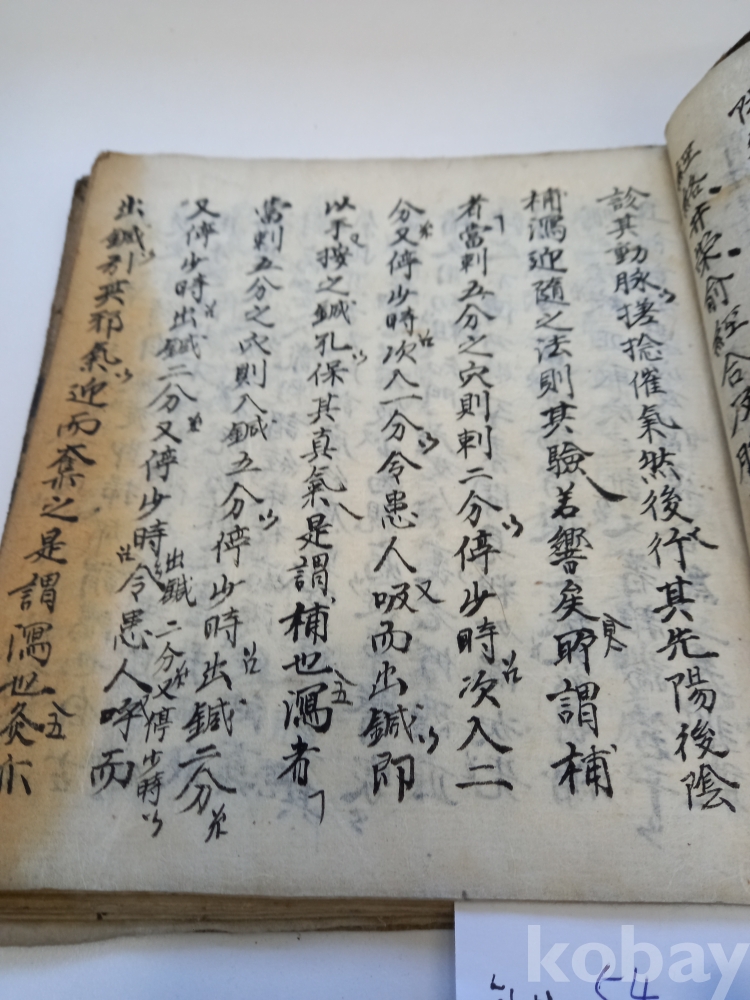 經絡井滎俞經合原
診其動脉搓捻催氣然後行其先陽後陰
補瀉迎隨之法則其驗若響矣所謂補
者當刺五分之穴則刺二分停少時次入二
分又停少時次入一分令患人吸而出鍼即
以手按之鍼孔保其真氣是謂補也瀉者
當刺五分之穴則入鍼五分停少時出鍼二分
又停少時出鍼二分又停少時令患人呼而
出鍼二分又停少時
出鍼引其邪氣迎而奪之是謂瀉也灸亦
kobay
54